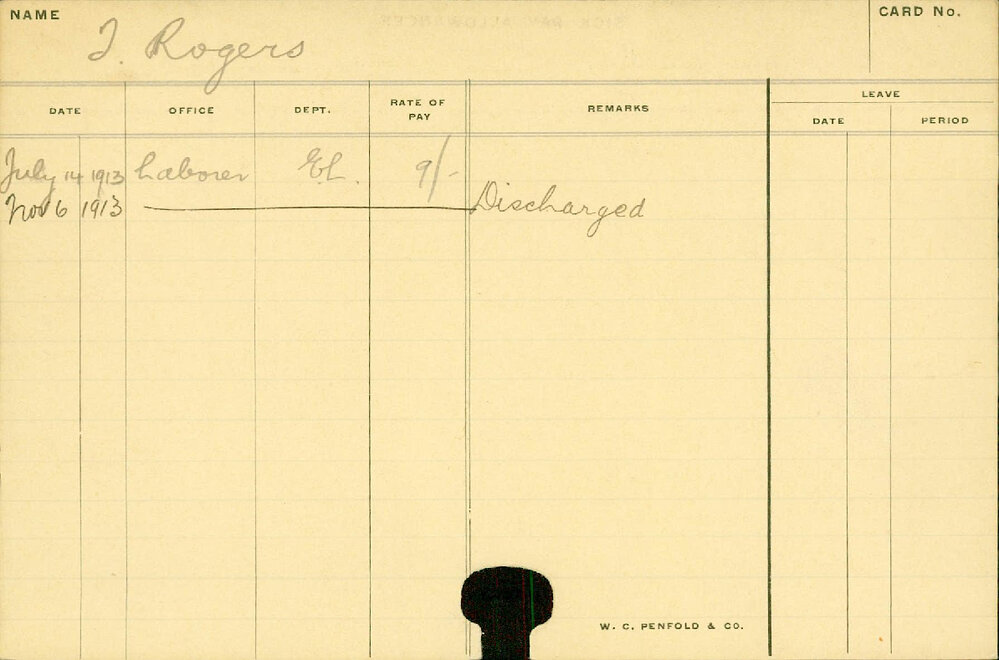 NAME
CARD No.
Rogers
DATE
OFFICE
DEPT.
RATE OF PAY
REMARKS
LEAVE
DATE
PERIOD
July 14 1913 Laborer EL. 9/-
Nov 6 1913 Discharged
W. C. PENFOLD & CO.